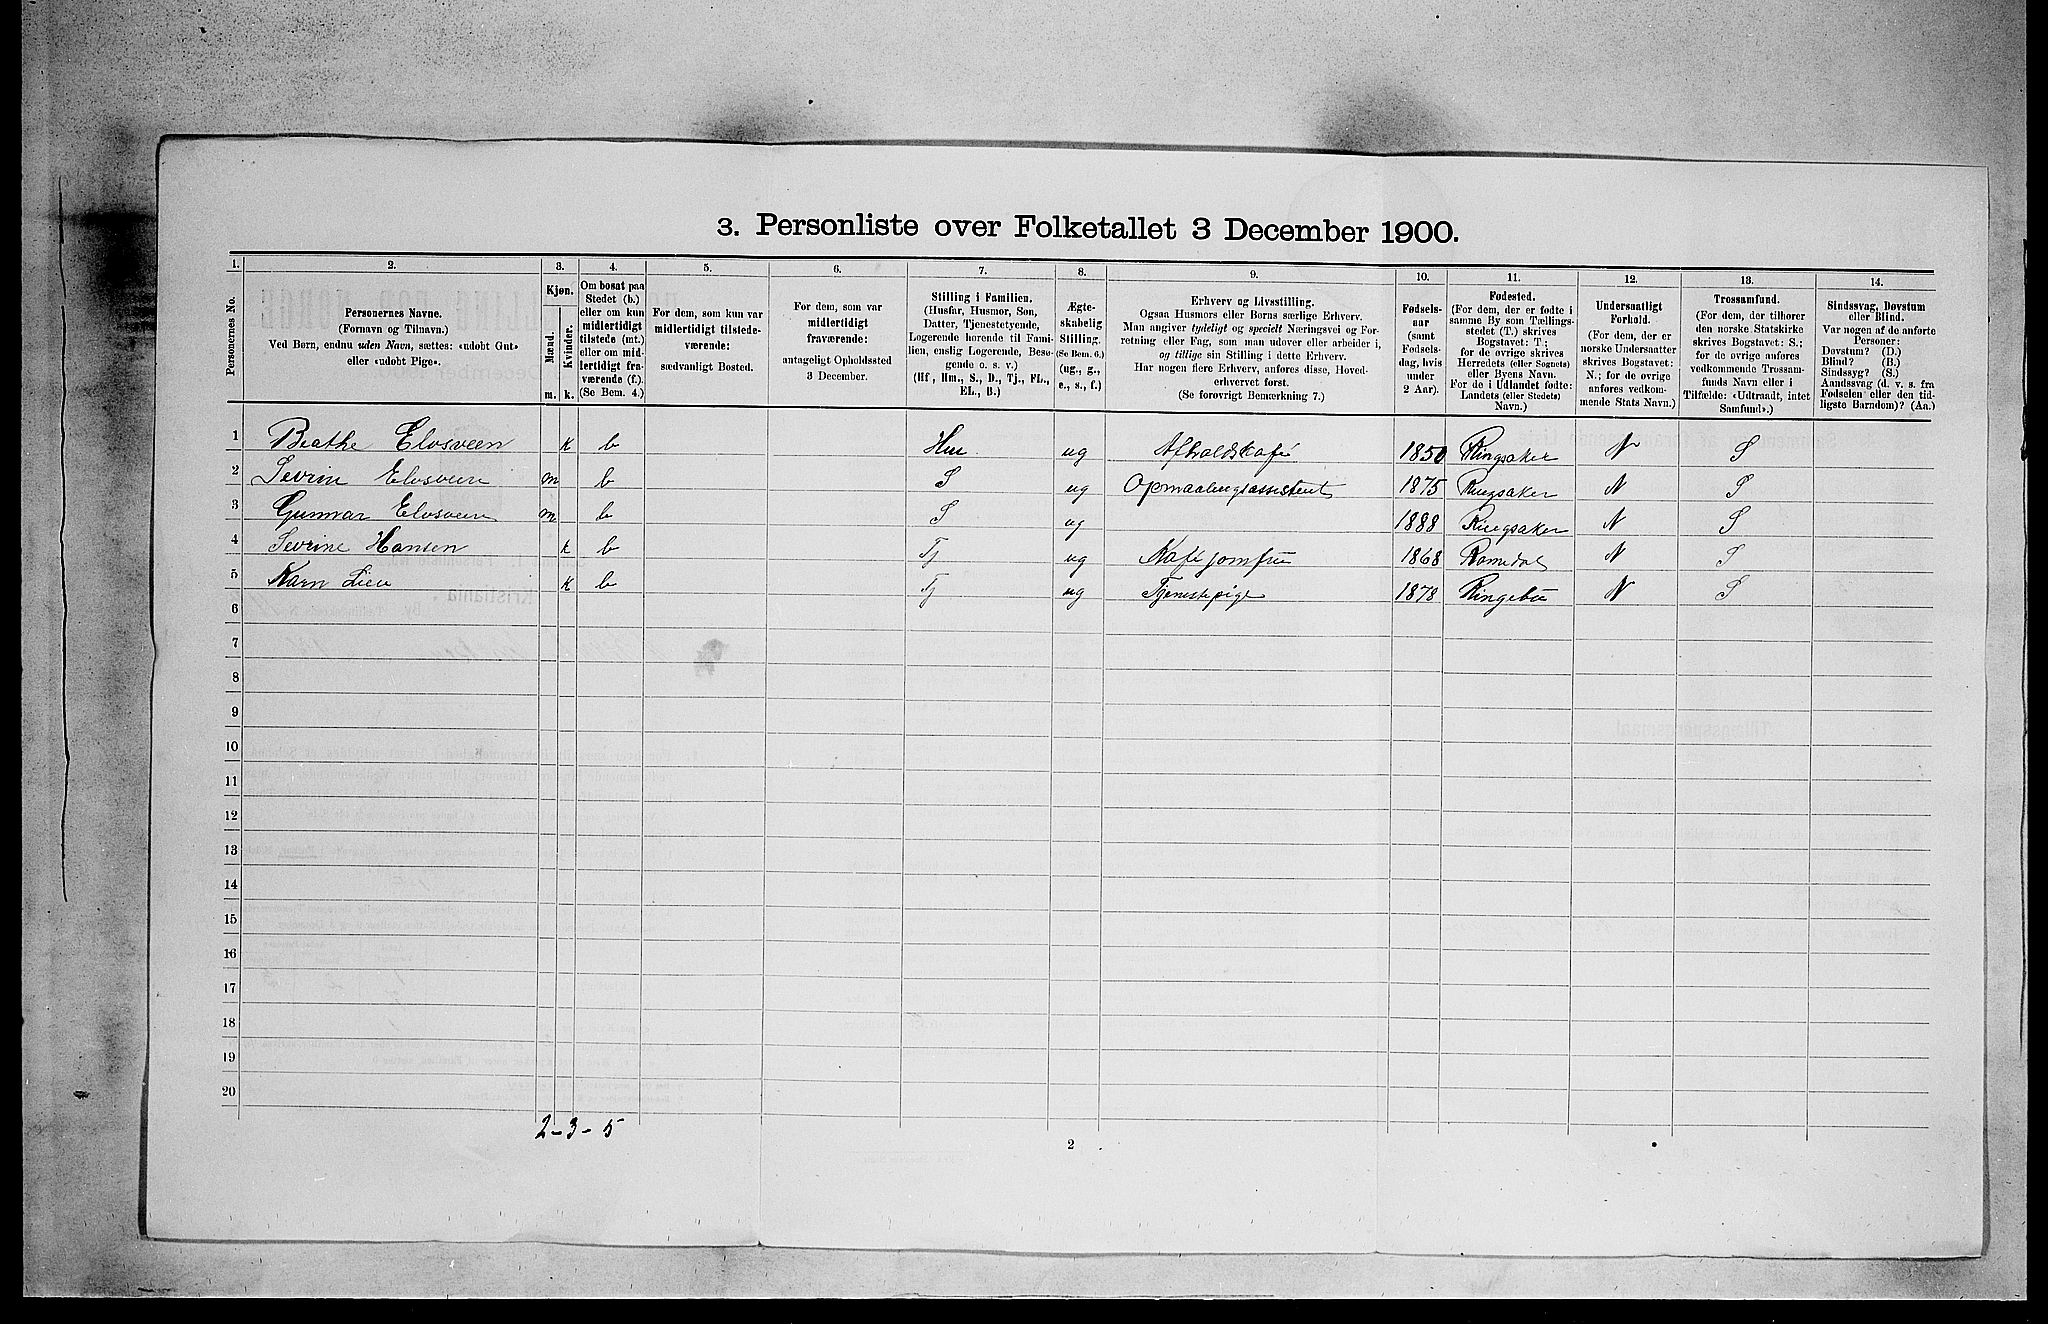 3. Personliste over Folketallet 3 December 1900.
1. 2. 3. 4. 5. 6. 7. 8. 9. 10. 11. 12. 13. 14.
Personernes No.
Personernes Navne.
(Fornavn og Tilnavn.)
Ved Børn, endnu uden Navn, sættes: «udøbt Gut»
eller «udøbt Pige».
Kjøn.
Mænd. Kvinder.
m. k.
Om bosat paa
Stedet (b.)
eller om kun
midlertidigt
tilstede (mt.)
eller om mid-
lertidigt fra-
værende (f.).
(Se Bem. 4.)
For dem, som kun var
midlertidigt tilstede-
værende:
sædvanligt Bosted.
For dem, som var
midlertidigt
fraværende:
antageligt Opholdssted
3 December.
Stilling i Familien.
(Husfar, Husmor, Søn,
Datter, Tjenestetyende,
Logerende hørende til Fami-
lien, enslig Logerende, Besø-
gende o. s. v.)
(Hf., Hm., S., D., Tj., FL.,
EL., B.)
Ægte-
skabelig
Stilling.
(Se Bem. 6.)
(ug., g.,
e., s., f.)
Erhverv og Livsstilling.
Ogsaa Husmors eller Børns særlige Erhverv.
Man angiver tydeligt og specielt Næringsvei og For-
retning eller Fag, som man udøver eller arbeider i,
og tillige sin Stilling i dette Erhverv.
Har nogen flere Erhverv, anføres disse, Hoved-
erhvervet først.
(Se forøvrigt Bemærkning 7.)
Fødsels-
aar
(samt
Fødsels-
dag, hvis
under
2 Aar).
Fødested.
(For dem, der er fødte i
samme By som Tællings-
stedet (T.) skrives
Bogstavet: T.;
for de øvrige skrives
Herredets (eller Sognets)
eller Byens Navn.
For de i Udlandet fødte:
Landets (eller Stedets)
Navn.)
Undersaatligt
Forhold.
(For dem, der er
norske Undersaatter
skrives Bogstavet:
N.; for de øvrige
anføres vedkom-
mende Stats Navn.)
Trossamfund.
(For dem, der tilhører
den norske Statskirke
skrives Bogstavet: S.;
for de øvrige anføres
vedkommende Trossam-
funds Navn eller i
Tilfælde: «Udtraadt, intet
Samfund».)
Sindssvag, Døvstum
eller Blind.
Var nogen af de anførte
Personer:
Døvstum? (D.)
Blind? (B.)
Sindssyg? (S.)
Aandssvag (d. v. s. fra
Fødselen eller den tid-
ligste Barndom)? (Aa.)
1 Beathe Elvsveen k b Hm ug Afholdskafé 1850 Ringsaker N S
2 Sevrin Elvsveen m b S ug Opmaalingsassistent 1875 Ringsaker N S
3 Gunnar Elvsveen m b S ug 1888 Ringsaker N S
4 Sevrine Hansen k b Tj ug Kafejomfru 1868 Romedal N S
5 Karn Lien k b Tj ug Tjenestepige 1878 Ringebu N S
6
7
8
9
10
11
12
13
14
15
16
17
18
19
20
2-3-5
2